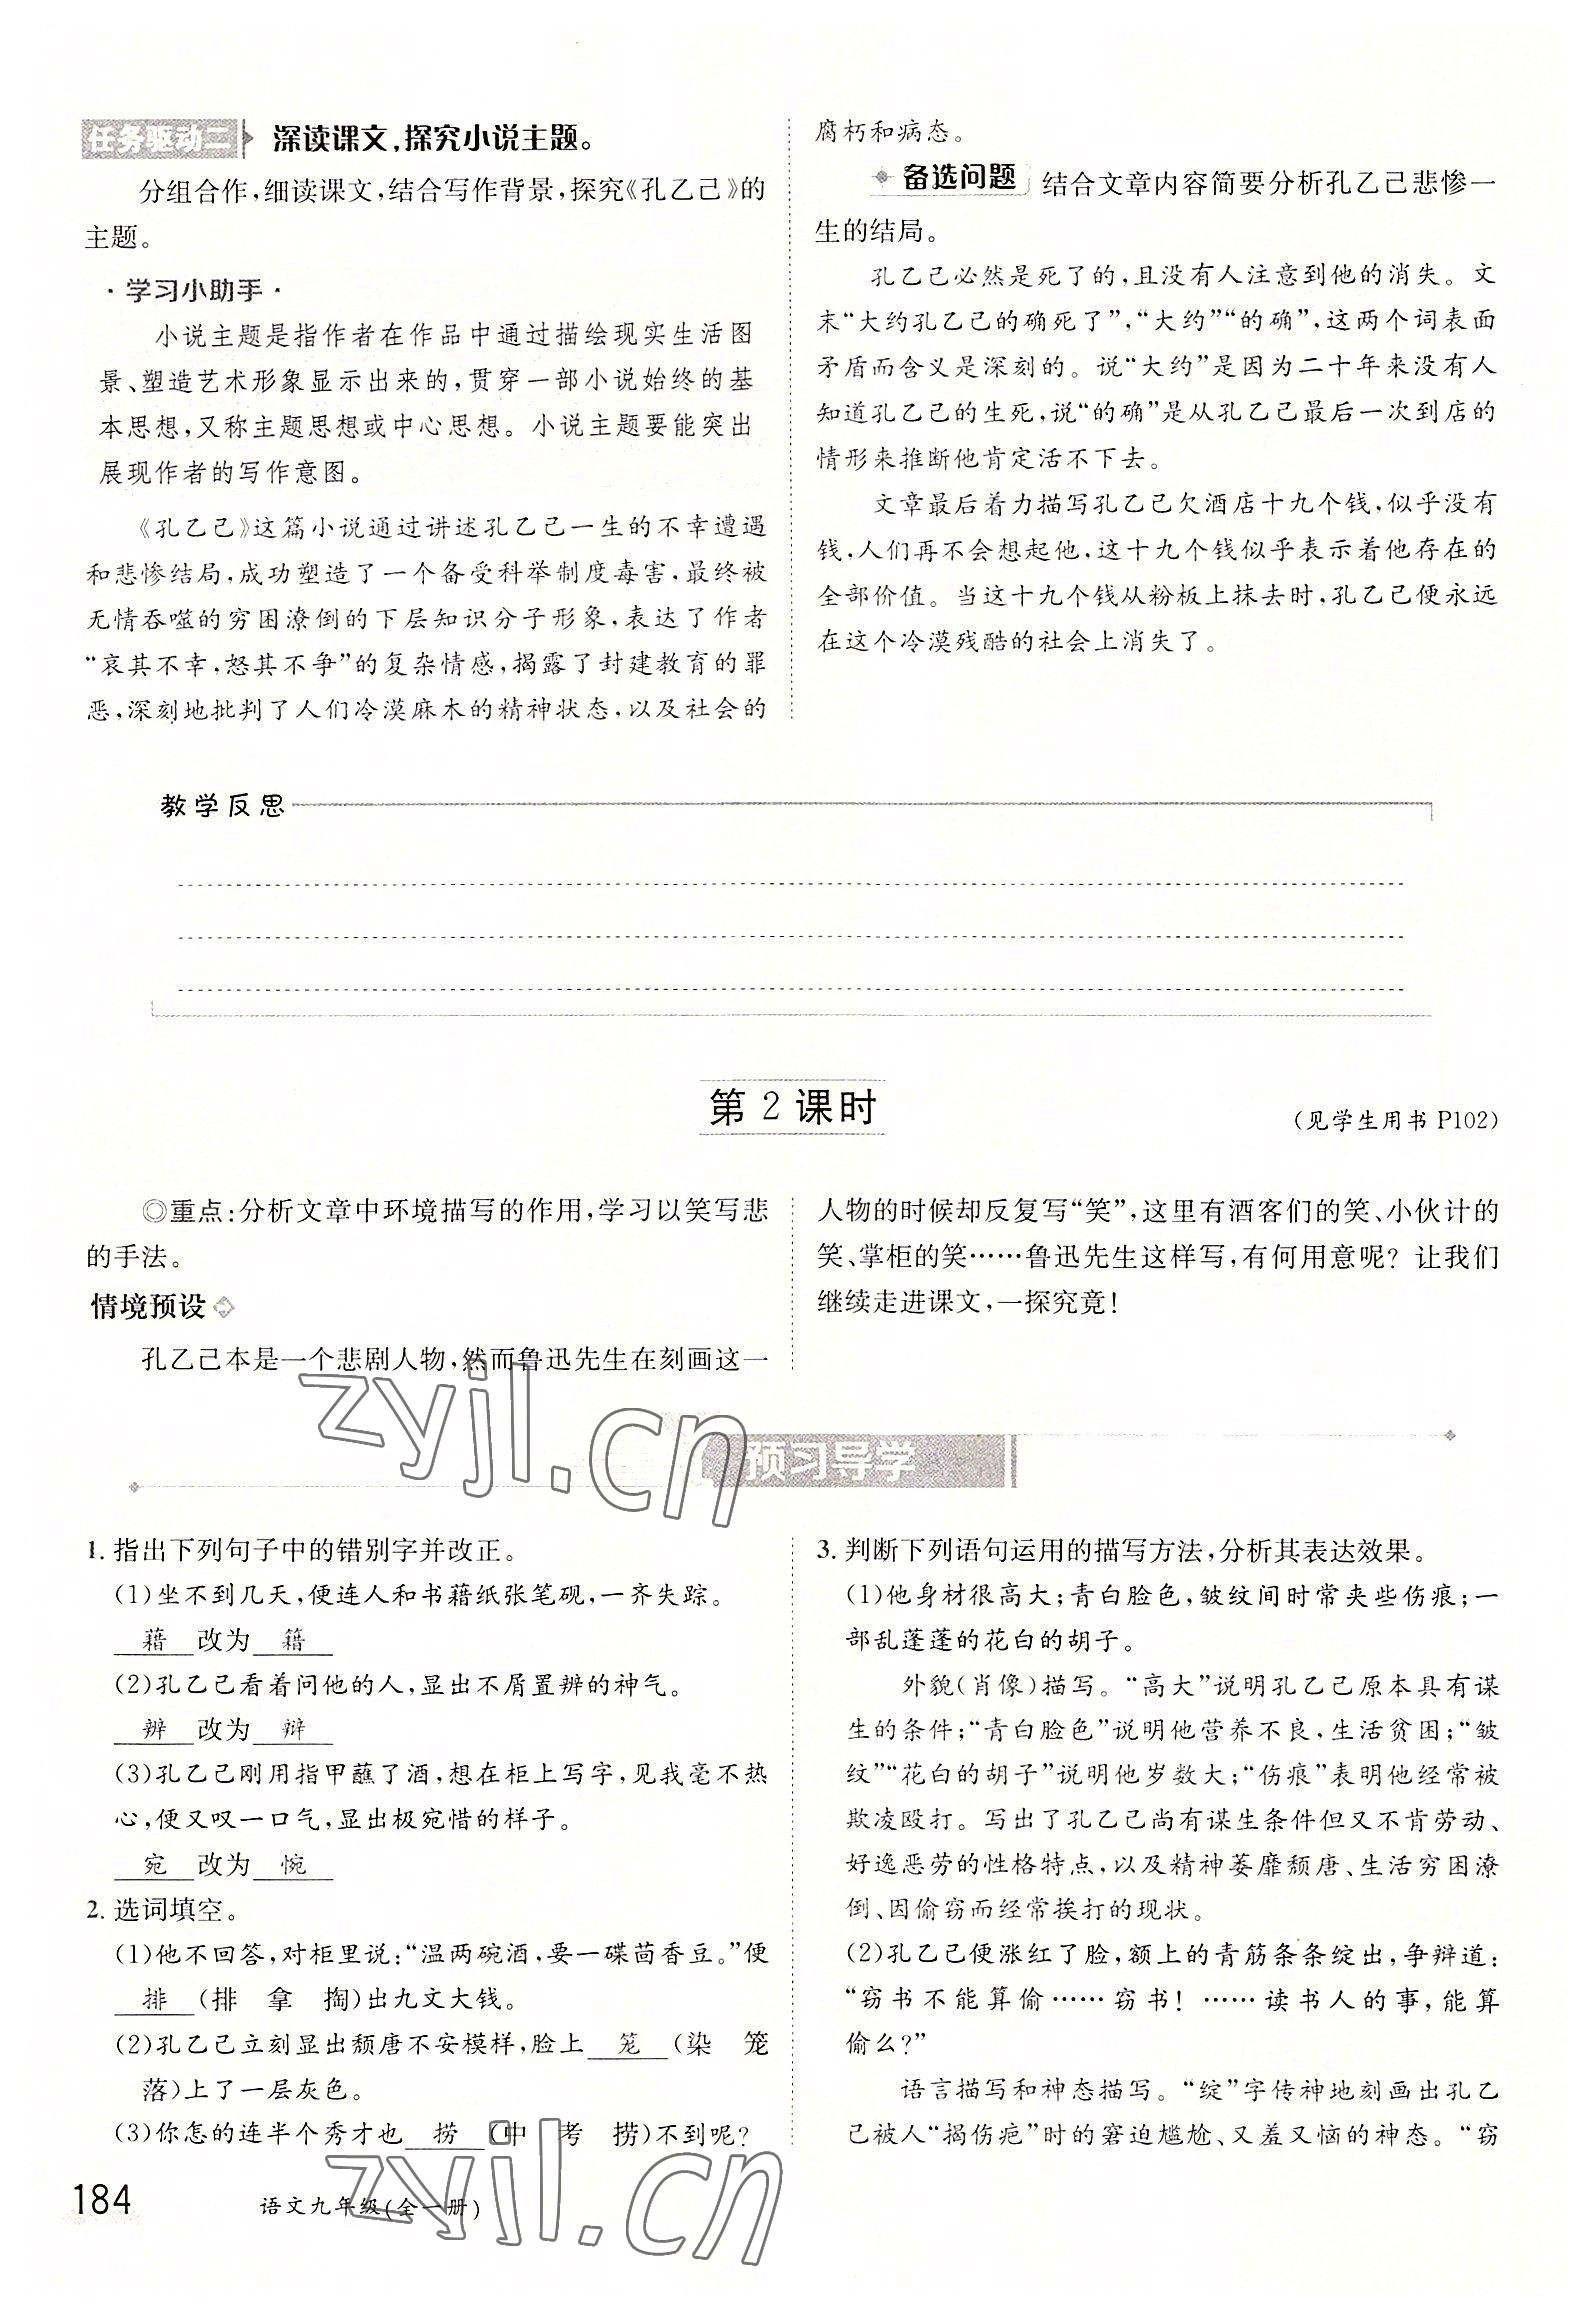 任务驱动二 深读课文,探究小说主题。
分组合作,细读课文,结合写作背景,探究《孔乙己》的
主题。
·学习小助手·
小说主题是指作者在作品中通过描绘现实生活图
景、塑造艺术形象显示出来的,贯穿一部小说始终的基
本思想,又称主题思想或中心思想。小说主题要能突出
展现作者的写作意图。
《孔乙己》这篇小说通过讲述孔乙己一生的不幸遭遇
和悲惨结局,成功塑造了一个备受科举制度毒害,最终被
无情吞噬的穷困潦倒的下层知识分子形象,表达了作者
“哀其不幸,怒其不争”的复杂情感,揭露了封建教育的罪
恶,深刻地批判了人们冷漠麻木的精神状态,以及社会的
腐朽和病态。
备选问题 结合文章内容简要分析孔乙己悲惨一
生的结局。
孔乙己必然是死了的,且没有人注意到他的消失。文
末“大约孔乙己的确死了”,“大约”“的确”,这两个词表面
矛盾而含义是深刻的。说“大约”是因为二十年来没有人
知道孔乙己的生死,说“的确”是从孔乙己最后一次到店的
情形来推断他肯定活不下去。
文章最后着力描写孔乙己欠酒店十九个钱,似乎没有
钱,人们再不会想起他,这十九个钱似乎表示着他存在的
全部价值。当这十九个钱从粉板上抹去时,孔乙己便永远
在这个冷漠残酷的社会上消失了。
教学反思
第 2 课时
(见学生用书 P102)
◎重点:分析文章中环境描写的作用,学习以笑写悲
的手法。
情境预设
孔乙己本是一个悲剧人物,然而鲁迅先生在刻画这一
人物的时候却反复写“笑”,这里有酒客们的笑、小伙计的
笑、掌柜的笑……鲁迅先生这样写,有何用意呢? 让我们
继续走进课文,一探究竟!
zyjl.cn
预习导学
1. 指出下列句子中的错别字并改正。
(1)坐不到几天,便连人和书藉纸张笔砚,一齐失踪。
藉 改为 籍
(2)孔乙己看着问他的人,显出不屑置辨的神气。
辨 改为 辩
(3)孔乙己刚用指甲蘸了酒,想在柜上写字,见我毫不热
心,便又叹一口气,显出极宛惜的样子。
宛 改为 惋
2. 选词填空。
(1)他不回答,对柜里说:“温两碗酒,要一碟茴香豆。”便
排 (排 拿 掏)出九文大钱。
(2)孔乙己立刻显出颓唐不安模样,脸上 笼 (染 笼
落)上了一层灰色。
(3)你怎的连半个秀才也 捞 (中 考 捞)不到呢?
3. 判断下列语句运用的描写方法,分析其表达效果。
(1)他身材很高大;青白脸色,皱纹间时常夹些伤痕;一
部乱蓬蓬的花白的胡子。
外貌(肖像)描写。“高大”说明孔乙己原本具有谋
生的条件;“青白脸色”说明他营养不良,生活贫困;“皱
纹”“花白的胡子”说明他岁数大;“伤痕”表明他经常被
欺凌殴打。写出了孔乙己尚有谋生条件但又不肯劳动、
好逸恶劳的性格特点,以及精神萎靡颓唐、生活穷困潦
倒、因偷窃而经常挨打的现状。
(2)孔乙己便涨红了脸,额上的青筋条条绽出,争辩道:
“窃书不能算偷……窃书! ……读书人的事,能算
偷么?”
语言描写和神态描写。“绽”字传神地刻画出孔乙
己被人“揭伤疤”时的窘迫尴尬、又羞又恼的神态。“窃
184
语文九年级(全一册)
zyjl.cn